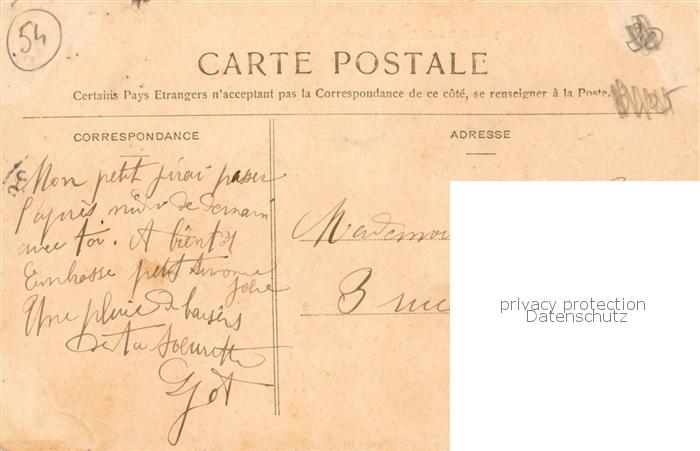 54
CARTE POSTALE
Certains Pays Etrangers n'acceptant pas la Correspondance de ce côté, se renseigner à la Poste.
CORRESPONDANCE
ADRESSE
Mon petit j'irai passer
l'après midi de demain
avec toi. A bientôt
Embrasse petit Simone
jolie
Une pluie de baisers
De ta soeurette
Mademoi
3 rue
privacy protection
Datenschutz